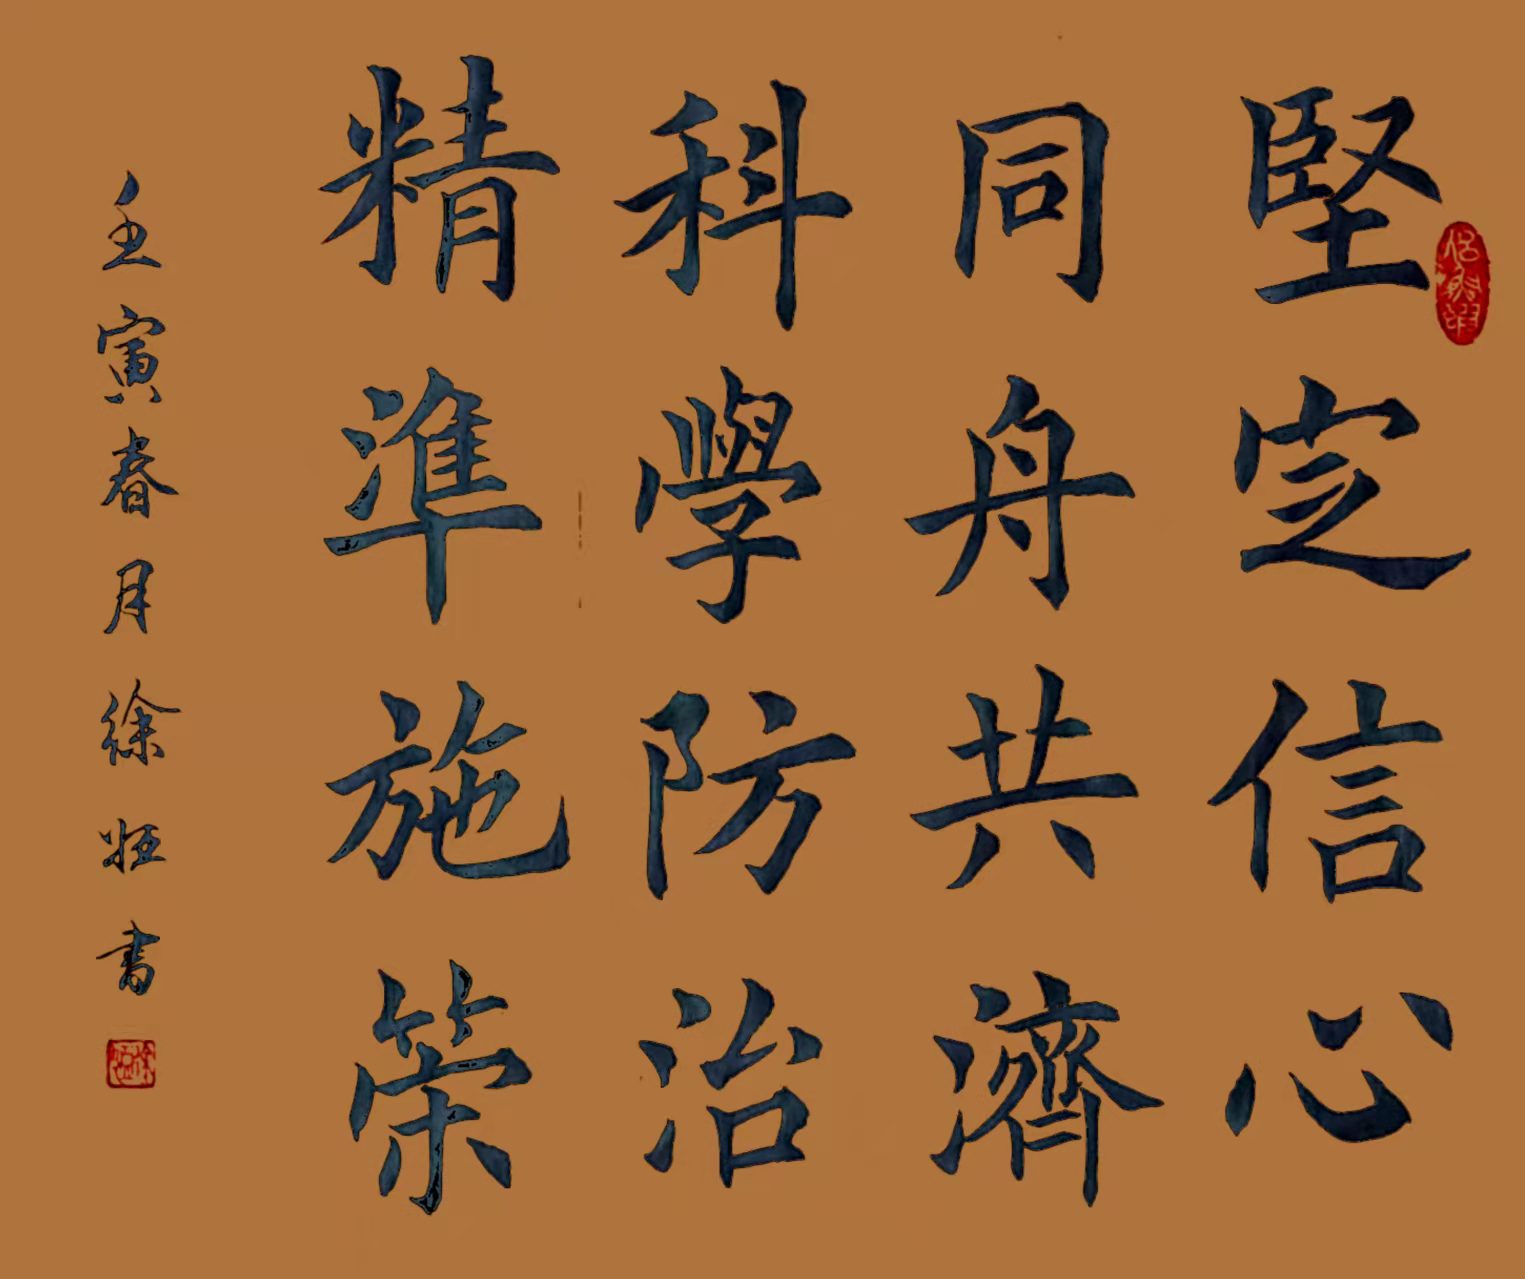 堅定信心
同舟共濟
科學防治
精準施策
壬寅春月徐恒書